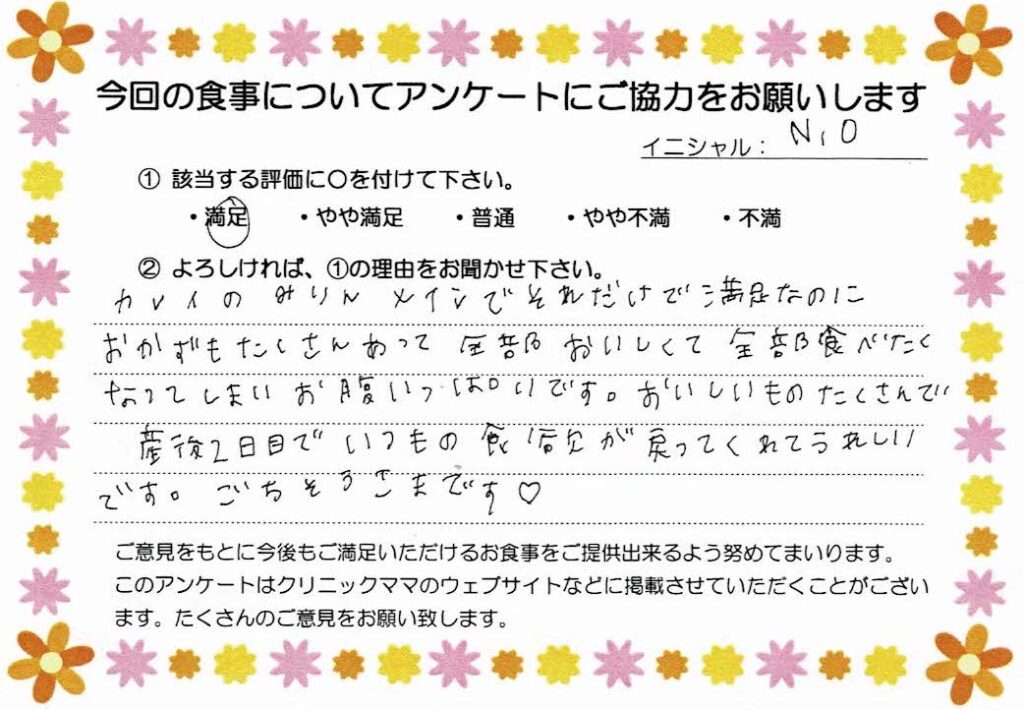 今回の食事についてアンケートにご協力をお願いします
イニシャル： N、O
① 該当する評価に〇を付けて下さい。
・満足 ・やや満足 ・普通 ・やや不満 ・不満
② よろしければ、①の理由をお聞かせ下さい。
カレイのみりんメインでそれだけで満足なのに
おかずもたくさんあって全部おいしくて全部食べたく
なってしまいお腹いっぱいです。おいしいものたくさんで
産後2日目でいつもの食欲が戻ってくれてうれしい
です。ごちそうさまです♡
ご意見をもとに今後もご満足いただけるお食事をご提供出来るよう努めてまいります。
このアンケートはクリニックママのウェブサイトなどに掲載させていただくことがござい
ます。たくさんのご意見をお願い致します。